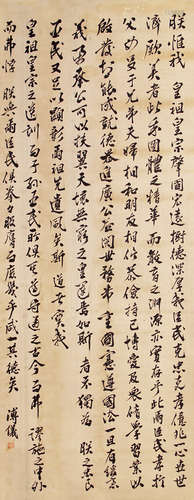 朕惟我
皇祖皇宗肇國宏遠樹德深厚我臣民克忠克孝億兆一心世世
濟厥美者此我國體之精華而教育之淵源亦實存乎此爾臣民孝于
父母友于兄弟夫婦相和朋友相信恭儉持己博愛及眾修學習業以
啟發智能成就德器進廣公益開世務常重國憲遵國法一旦有緩急
義勇奉公可以扶翼天壤無窮之皇運者如斯者不獨為朕之忠良
臣民又足以顯彰爾祖先遺風矣斯道也實我
皇祖皇宗遺訓而子孫臣民所俱可遵守通之古今而弗謬施之中外
而弗悖朕與爾臣民俱拳々服膺而庶幾乎咸一其德矣
溥儀